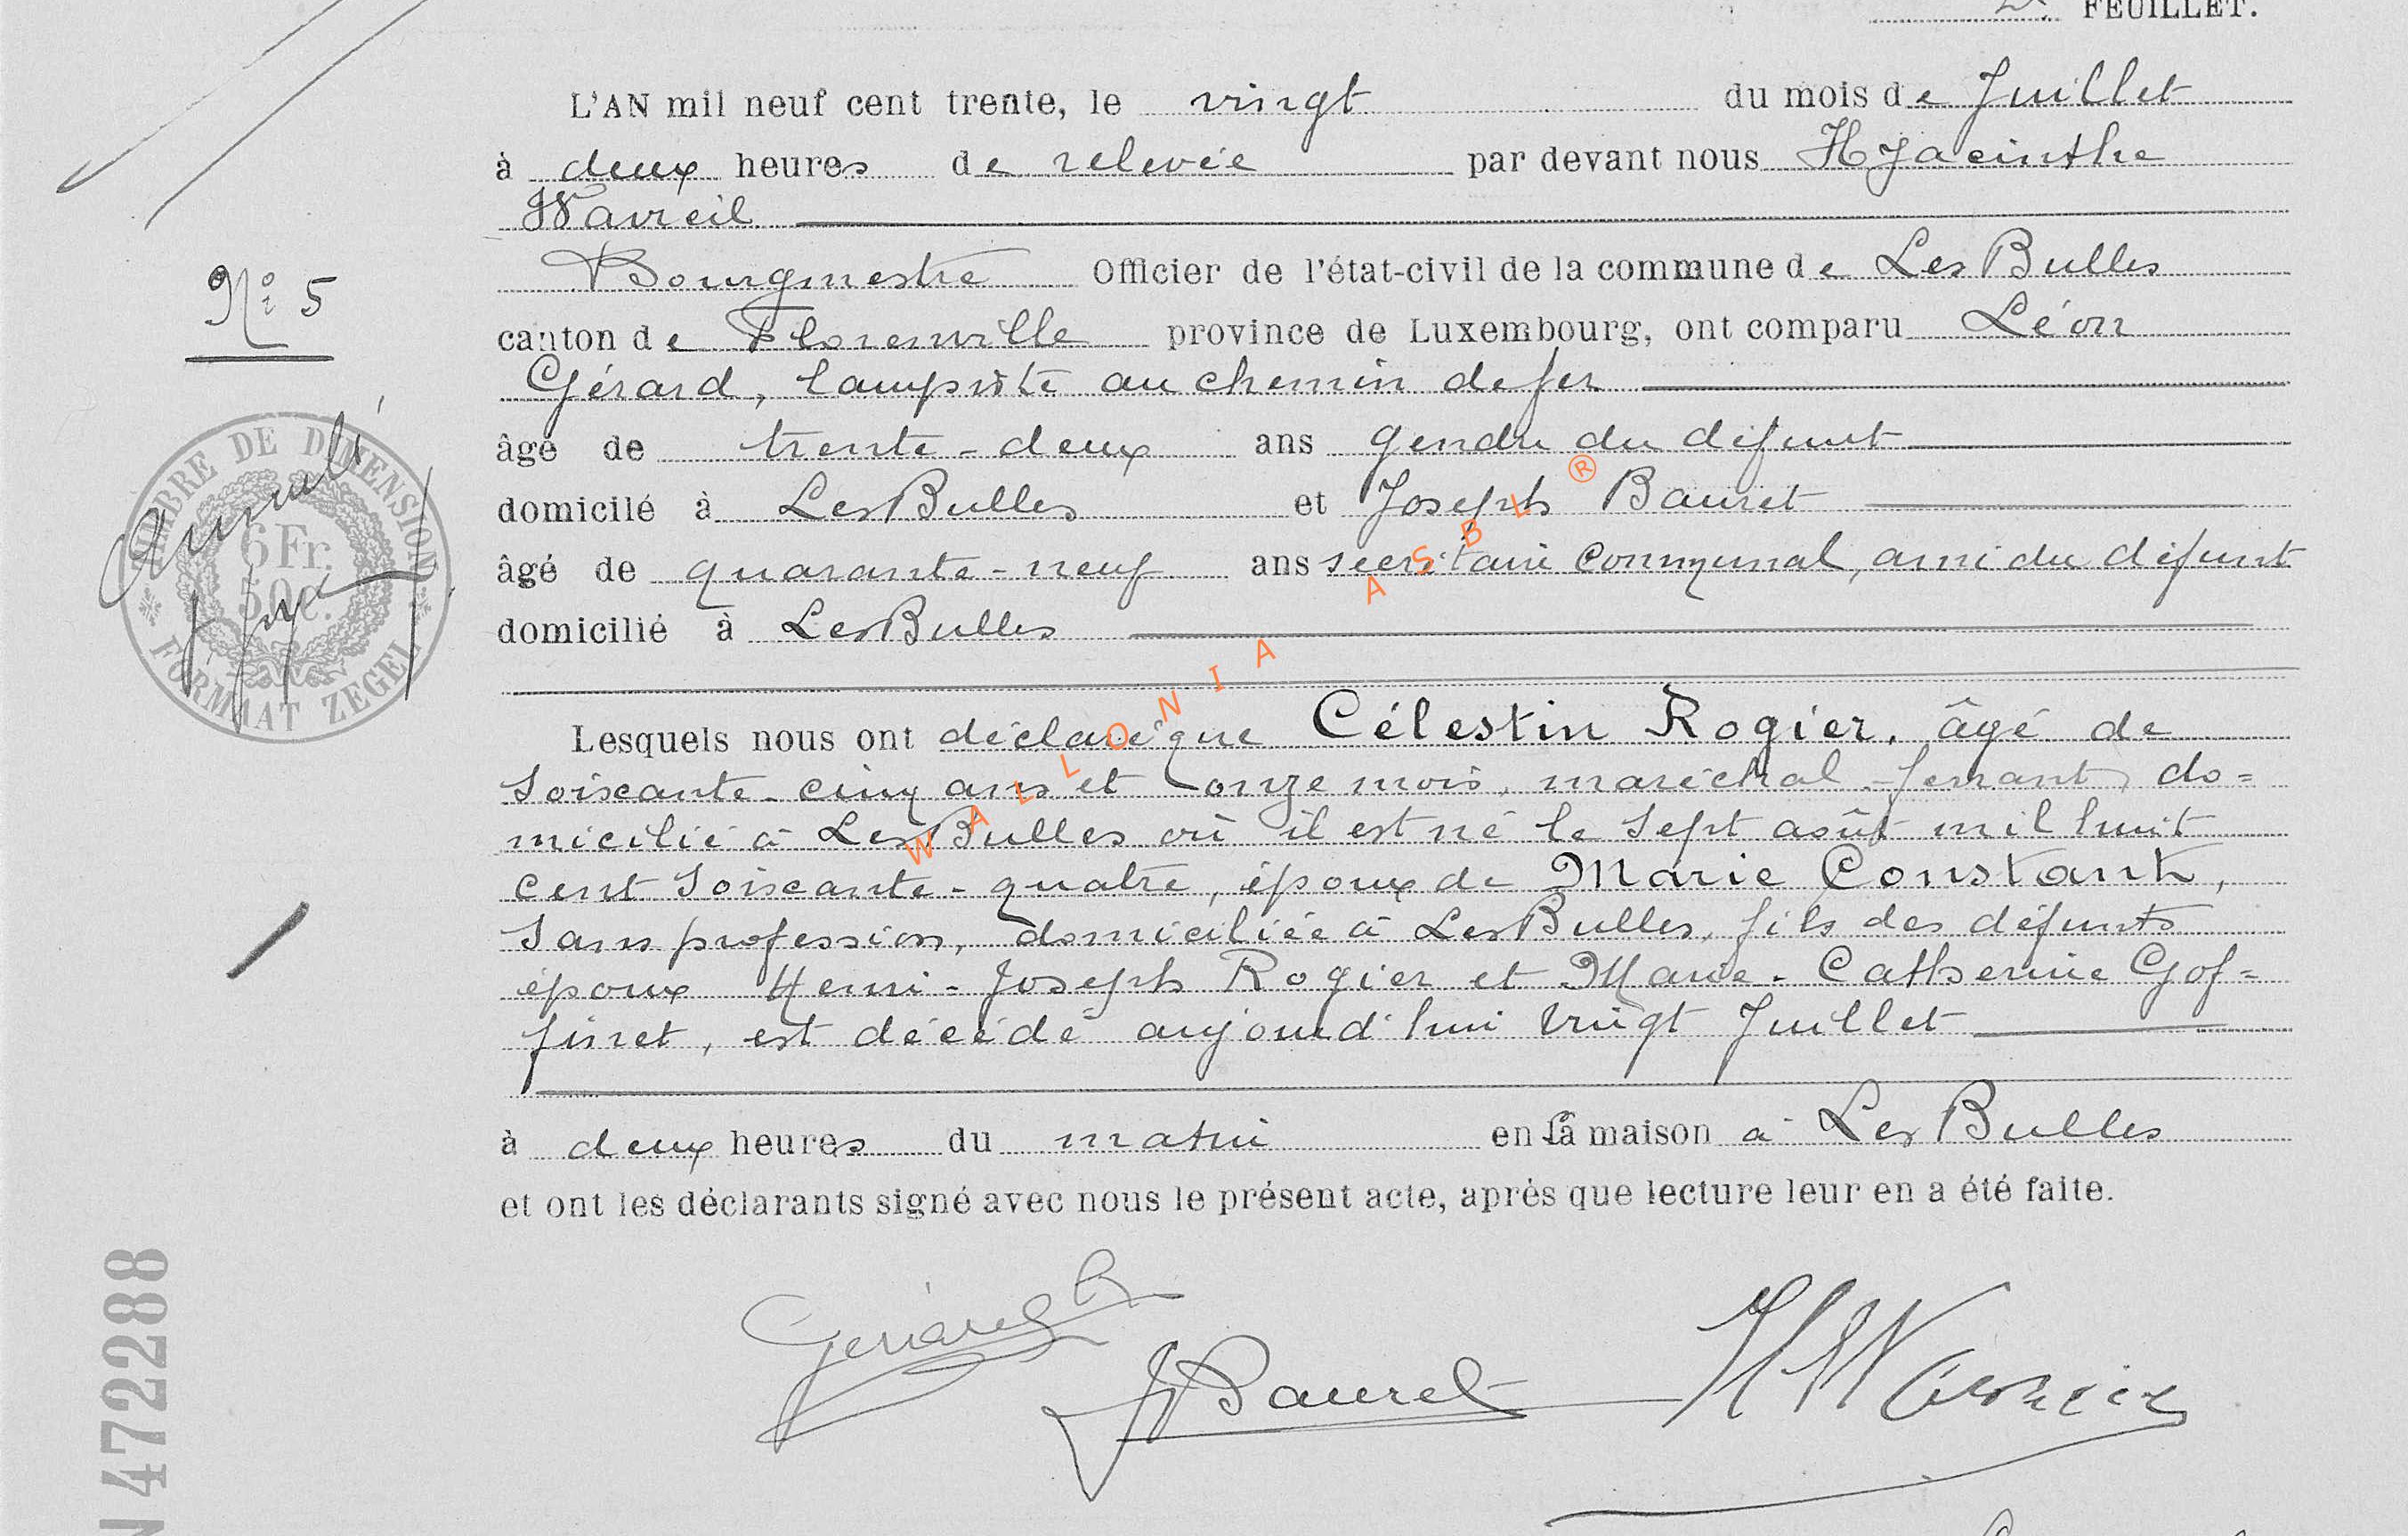 FEUILLET.
L'AN mil neuf cent trente, le vingt du mois de Juillet
à deux heures de relevée par devant nous Hyacinthe
Wavreil
Bourgmestre Officier de l'état-civil de la commune de Les Bulles
N° 5
canton de Florenville province de Luxembourg, ont comparu Léon
Gérard, lampiste au chemin de fer
âgé de trente-deux ans gendre du défunt
domicilé à Les Bulles et Joseph Bauret
âgé de quarante-neuf ans secrétaire communal, ami du défunt
domicilié à Les Bulles
TIMBRE DE DIMENSION
6 Fr.
50c.
FORMAAT ZEGEL
Annulé
WALLONIA ASBL ®
Lesquels nous ont déclaré que Célestin Rogier, âgé de
soixante-cinq ans et onze mois, maréchal-ferrant, do=
micilié à Les Bulles où il est né le sept août mil huit
cent soixante-quatre, époux de Marie Constant,
sans profession, domiciliée à Les Bulles, fils des défunts
époux Henri-Joseph Rogier et Marie-Catherine Gof=
finet, est décédé aujourd'hui vingt Juillet
à deux heures du matin en sa maison à Les Bulles
et ont les déclarants signé avec nous le présent acte, après que lecture leur en a été faite.
Gérard L
J Bauret
H Wavreil
N 472288